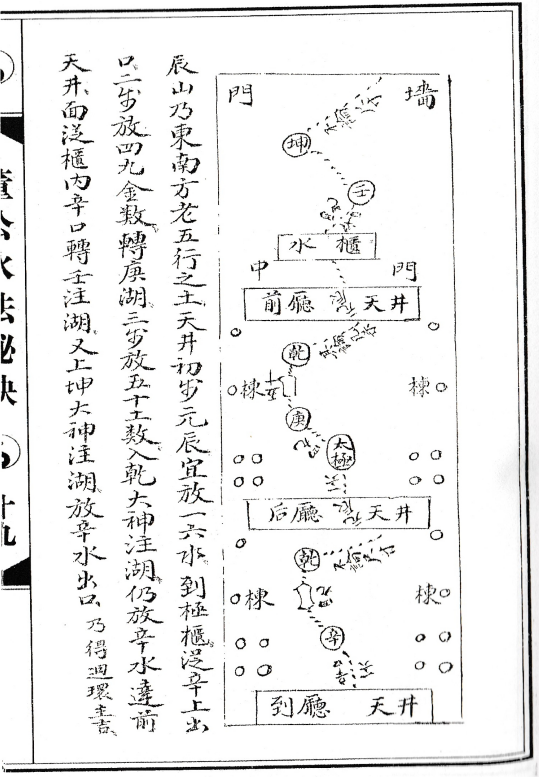 墻
門
水出辛
坤
壬
水櫃
門
中
前廳 天井
乾
棟
棟
庚
太極
一六
后廳 天井
乾
四九
棟
棟
辛
到廳 天井
辰山乃東南方老五行之土天井初步元辰宜放一六水到極櫃從辛上出
口二步放四九金数轉庚湖三步放五十土数入乾大神注湖仍放辛水達前
天井面從櫃内辛口轉壬注湖又上坤大神注湖放辛水出口乃得週環圭吉
董公水法秘訣
十九